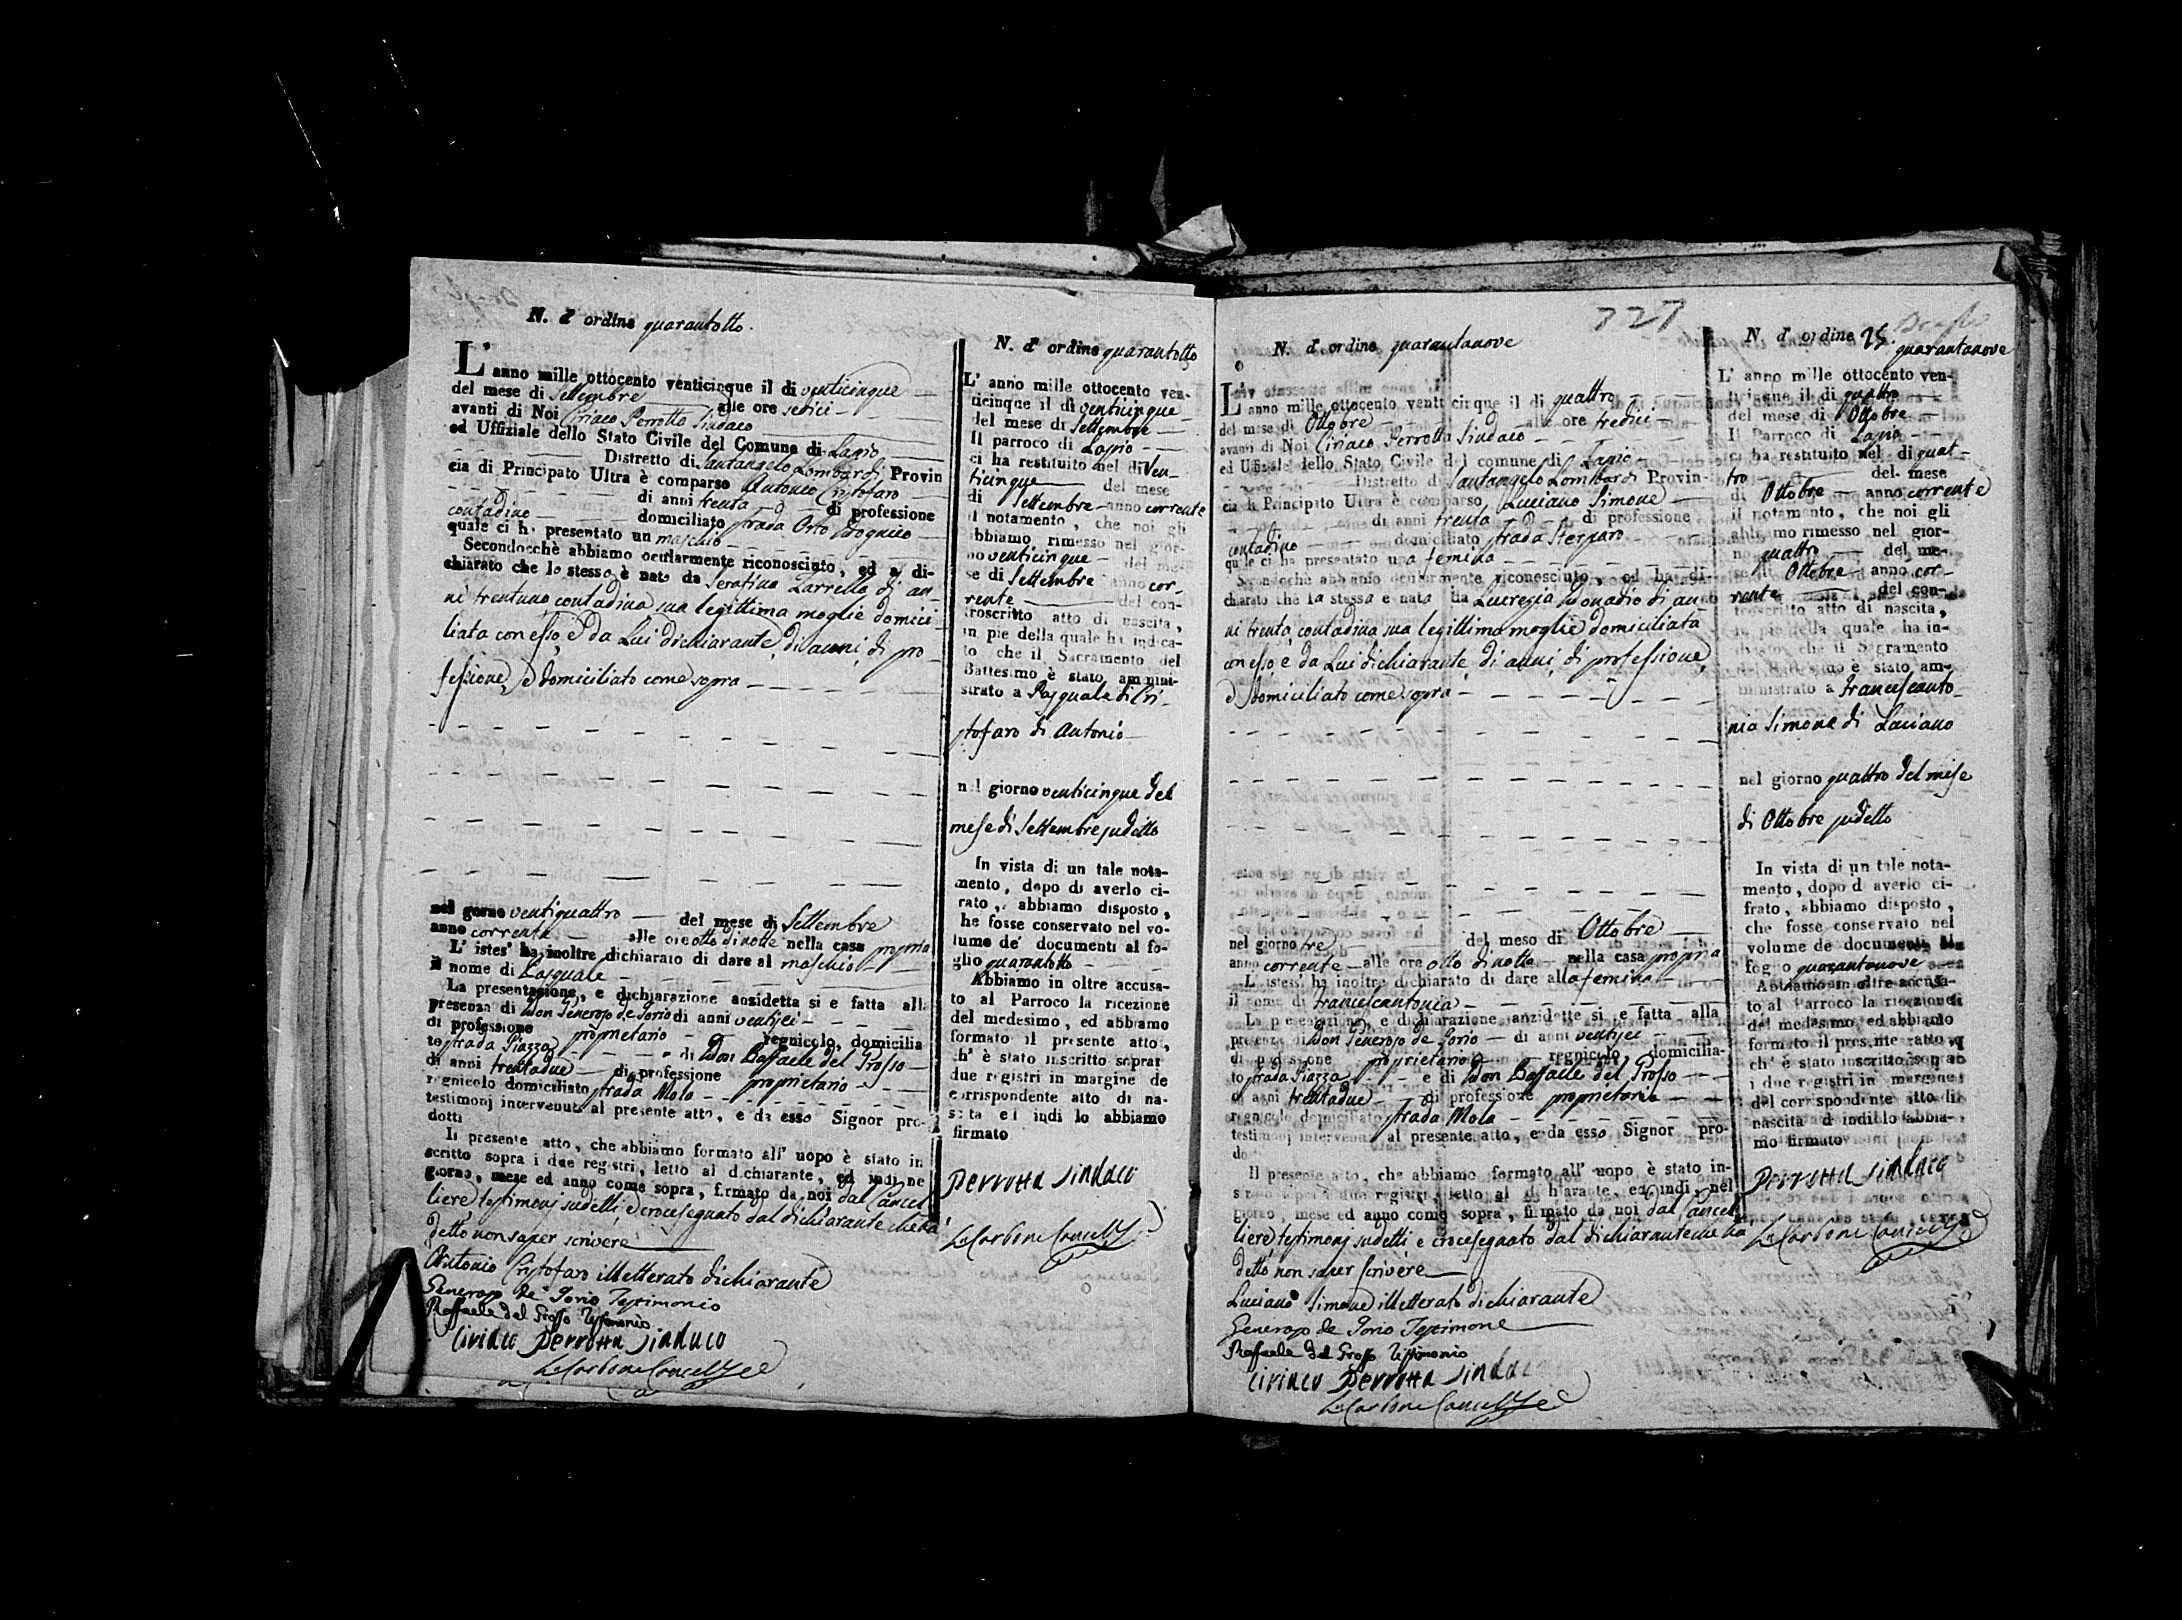 N. d' ordine quarantotto.
L' anno mille ottocento venticinque il di venticinque
del mese di Settembre alle ore sedici
avanti di Noi Ciriaco Perrotta Sindaco
ed Uffiziale dello Stato Civile del Comune di Lapio
Distretto di Santangelo Lombardi Provin
cia di Principato Ultra è comparso Antonio Cristofaro
di anni trenta di professione
contadino domiciliato strada Orto
quale ci h' presentato un maschio
Secondocchè abbiamo ocularmente riconosciuto, ed a di-
chiarato che lo stesso è nato da Serafina Zarrella di an
ni trentuno contadina sua legittima moglie domici
liata con esso, e da Lui dichiarante, di anni, di pro
fessione, e domiciliato come sopra
nel gorno ventiquattro del mese di Settembre
anno corrente alle ore otto di notte nella casa propria
L' istes' ha inoltre dichiarato di dare al maschio
il nome di Pasquale
La presentazione, e dichiarazione anzidetta si e fatta alla
presenza di Don Generoso de Iorio di anni ventisei
di professione proprietario regnicolo, domicilia
to strada Piazza e di Don Raffaele del Grosso
di anni trentadue di professione proprietario
regnicolo domiciliato strada Mola
testimonj intervenuti al presente atto, e da esso Signor pro-
dotti
Il presente atto, che abbiamo formato all' uopo è stato in
scritto sopra i due registri, letto al dichiarante, ed indi nel
giorno, mese ed anno come sopra, firmato da noi dal Cancel
liere testimonj sudetti, e crocesegnato dal dichiarante che ha
detto non saper scrivere
Antonio Cristofaro illetterato dichiarante
Generoso de Iorio Testimonio
Raffaele del Grosso Testimonio
Ciriaco Perrotta Sindaco
Carbone Cancelliere
N. d' ordine quarantotto
L' anno mille ottocento ven-
ticinque il di venticinque
del mese di Settembre
Il parroco di Lapio
ci ha restituito nel di Ven-
ticinque del mese
di Settembre anno corrente
il notamento, che noi gli
abbiamo rimesso nel gior-
no venticinque del mese
se di Settembre anno cor-
rente del con-
troscritto atto di nascita,
in pie della quale ha indica-
to che il Sacramento del
Battesimo è stato ammini-
strato a Pasquale di Cri-
stofaro di Antonio
nel giorno venticinque del
mese di Settembre sudetto
In vista di un tale nota-
mento, dopo di averlo ci-
frato, abbiamo disposto,
che fosse conservato nel vo-
lume de' documenti al fo-
glio quarantotto
Abbiamo in oltre accusa-
to al Parroco la ricezione
del medesimo, ed abbiamo
formato il presente atto,
ch' è stato inscritto sopra
due registri in margine de
corrispondente atto di na-
scita ed indi lo abbiamo
firmato
Perrotta Sindaco
Carbone Cancelliere
327
N. d' ordine quarantanove
L' anno mille ottocento venticinque il di quattro
del mese di Ottobre alle ore tredici
avanti di Noi Ciriaco Perrotta Sindaco
ed Uffiziale dello Stato Civile del comune di Lapio
Distretto di Santangelo Lombardi Provin-
cia di Principato Ultra è comparso Luciano Simone
di anni trenta di professione
contadino domiciliato strada Sterparo
quale ci ha presentato una femina
Secondochè abbiamo ocularmente riconosciuto, ed ha di-
chiarato che la stessa è nata da Lucrezia Bonadio di an
ni trenta contadina sua legittima moglie domiciliata
con esso, e da Lui dichiarante, di anni, di professione,
e domiciliato come sopra
nel giorno tre del mese di Ottobre
anno corrente alle ore otto di notte nella casa propria
L' istess' ha inoltre dichiarato di dare alla femina
il nome di Francescantonia
La presentazione, e dichiarazione anzidette si e fatta alla
presenza di Don Generoso de Iorio di anni ventisei
di professione proprietario regnicolo domicilia-
to strada Piazza e di Don Raffaele del Grosso
di anni trentadue di professione proprietario
regnicolo domiciliato strada Mola
testimonj intervenuti al presente atto, e da esso Signor pro-
do
Il presente atto, che abbiamo formato all' uopo è stato in-
scritto sopra i due registri, letto al dichiarante, ed indi nel
giorno, mese ed anno come sopra, firmato da noi dal Cancel
liere, testimonj sudetti e crocesegnato dal dichiarante che ha
detto non saper scrivere
Luciano Simone illetterato dichiarante
Generoso de Iorio Testimone
Raffaele del Grosso Testimonio
Ciriaco Perrotta Sindac
Carbone Cancelliere
N. d' ordine 25.
quarantanove
L' anno mille ottocento ven-
ticinque il di quattro
del mese di Ottobre
Il Parroco di Lapio
ci ha restituito nel di quat-
tro del mese
di Ottobre anno corrente
il notamento, che noi gli
abbiamo rimesso nel gior-
no quattro del me-
se di Ottobre anno cor-
rente del con-
troscritto atto di nascita,
in pie della quale ha in-
dicato che il Sagramento
del Battesimo è stato am-
ministrato a Francescanto-
nia Simone di Luciano
nel giorno quattro del mese
di Ottobre sudetto
In vista di un tale nota-
mento, dopo d averlo ci-
frato, abbiamo disposto,
che fosse conservato nel
volume de documenti al
fogio quarantanove
Abbiamo in oltre accusa-
to al Parroco la ricezione
del medesimo, ed abbiamo
formato il presente atto
ch' è stato inscritto sopra
i due registri in margine
del corrispondente atto di
nascita d indi lo abbia-
mo firmato
Perrotta Sindaco
Carbone Cancelliere